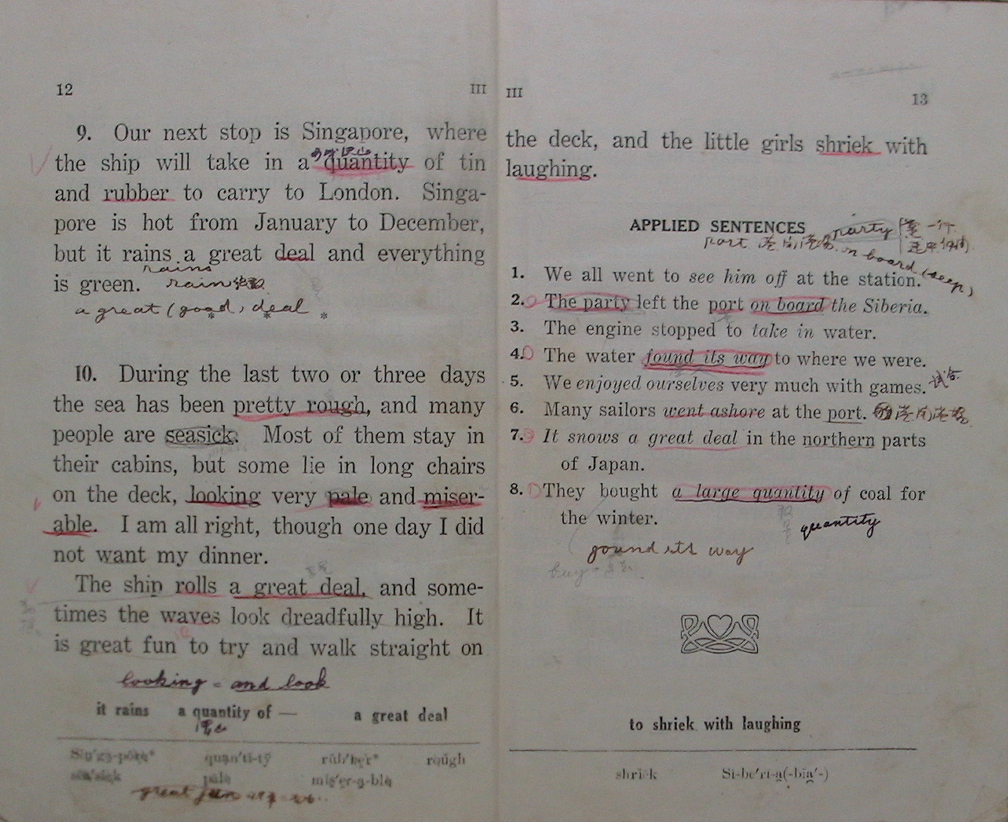 12 III
9. Our next stop is Singapore, where
the ship will take in a quantity of tin
and rubber to carry to London. Singa-
pore is hot from January to December,
but it rains a great deal and everything
rains
is green. rain
a great (good) deal
10. During the last two or three days
the sea has been pretty rough, and many
people are seasick. Most of them stay in
their cabins, but some lie in long chairs
on the deck, looking very pale and miser-
able. I am all right, though one day I did
not want my dinner.
The ship rolls a great deal, and some-
times the waves look dreadfully high. It
is great fun to try and walk straight on
looking = and look
it rains a quantity of — a great deal
quan'ti-ty rub'ber rough
pale mis'er-a-ble
great fun
III 13
the deck, and the little girls shriek with
laughing.
APPLIED SENTENCES party
part
on board
1. We all went to see him off at the station.
2. The party left the port on board the Siberia.
3. The engine stopped to take in water.
4. The water found its way to where we were.
5. We enjoyed ourselves very much with games.
6. Many sailors went ashore at the port.
7. It snows a great deal in the northern parts
of Japan.
8. They bought a large quantity of coal for
the winter. quantity
way
to shriek with laughing
shriek Si-be'ri-a(-bia'-)